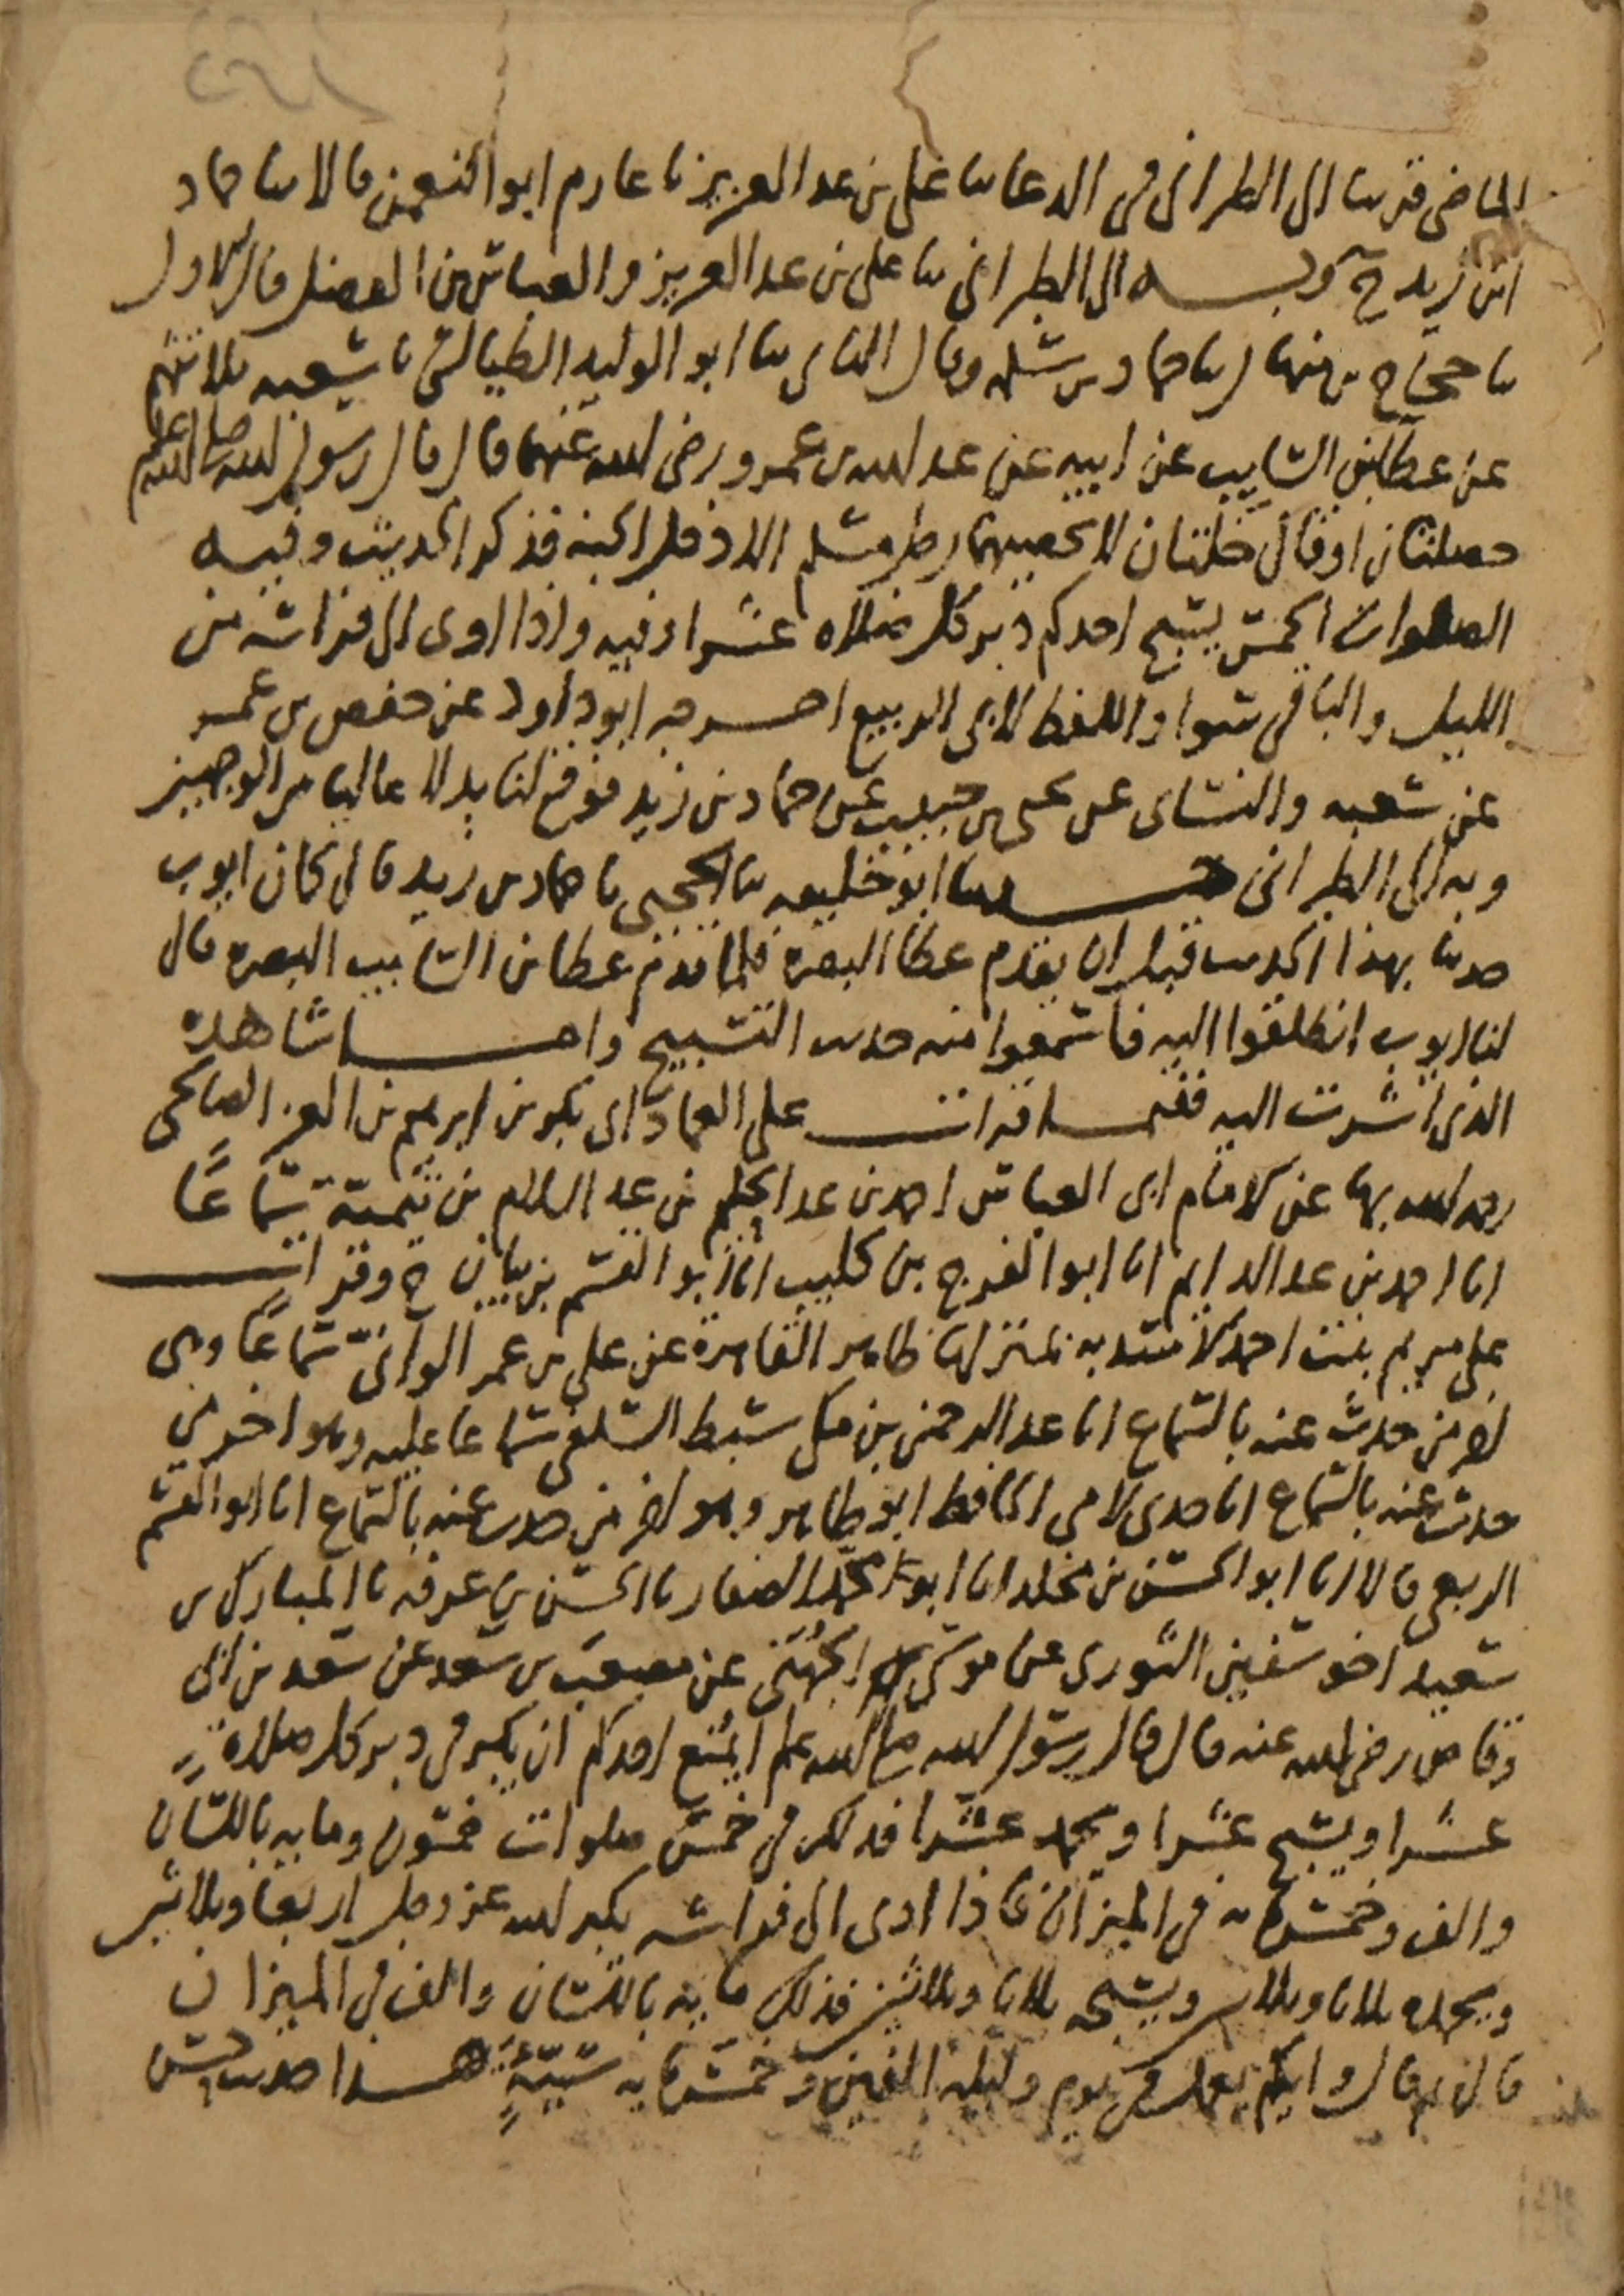 الماضى قريبا الى الطبرانى فى الدعا ثنا على بن عبد العزيز نا عارم ابو النعمن قالا ثنا حماد
ابن زيد ح وبه الى الطبرانى ثنا على بن عبد العزيز والعباس بن الفضل قال الاول
ثنا حجاج بن منهال ثنا حماد بن سلمه وقال الثانى ثنا ابو الوليد الطيالسى نا شعبه ثلاثتهم
عن عطا بن السايب عن ابيه عن عبد الله بن عمرو رضى الله عنهما قال قال رسول الله صلى الله عليه
خصلتان او قال خلتان لا يحصيهما رجل مسلم الا دخل الجنه فذكر الحديث وفيه
الصلوات الخمس يسبح احدكم دبر كل صلاه عشرا وفيه واذا اوى الى فراشه من
الليل والباقى سوا واللفظ لابى الربيع اخرجه ابو داود عن حفص بن عمر
عن شعبه والنساى عن يحيى بن حبيب عن حماد بن زيد فوقع لنا بدلا عاليا من الوجهين
وبه الى الطبرانى حدثنا ابو خليفه ثنا الحجبى نا حماد بن زيد قال كان ايوب
حدثنا بهذا الحديث قبل ان يقدم عطا البصره فلما قدم عطا بن السايب البصره قال
لنا ايوب انطلقوا اليه فاسمعوا منه حديث التسبيح واما شاهده
الذى اشرت اليه ففيما قرات على العماد ابى بكر بن ابرهيم بن العز الصالحى
رحمه الله بها عن الامام ابى العباس احمد بن عبد الحليم بن عبد السلام بن تيمية سماعًا
انا احمد بن عبد الدايم انا ابو الفرج بن كليب انا ابو القسم بن بيان ح وقرات
على مريم بنت احمد الاسديه بمنزلها ظاهر القاهرة عن على بن عمر الوانىّ سماعًا وهى
اخر من حدث عنه بالسماع انا عبد الرحمن بن مكى سبط السلفى سماعا عليه وهو اخر من
حدث عنه بالسماع انا جدى لامى الحافظ ابو طاهر وهو اخر من حدث عنه بالسماع انا ابو القسم
الربعى قالا انا ابو الحسن بن مخلد انا ابو محمد الصفار نا الحسن بن عرفه نا المبارك بن
سعيد اخو سفين الثورى عن موسى الجُهَنى عن مصعب بن سعد عن سعد بن ابى
وقاص رضى الله عنه قال قال رسول الله صلى الله عليه ايمنع احدكم ان يكبر فى دبر كل صلاة
عشرا ويسبح عشرا ويحمد عشرا فذلك فى خمس صلوات خمسون ومايه باللسان
والف وخمسمايه فى الميزان فاذا اوى الى فراشه يكبر الله عز وجل اربعا وثلاثين
ويحمده ثلاثا وثلاثين ويسبحه ثلاثا وثلاثين فذلك مايه باللسان والف فى الميزان
قال ثم قال وايكم يعمل فى يوم وليله الفين وخمسمايه سيّئةٍ هذا حديث حسن